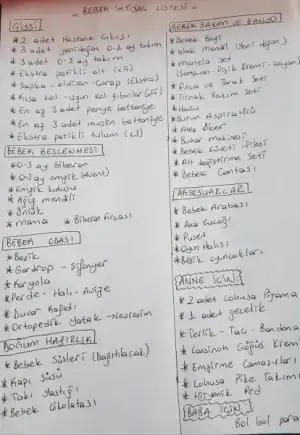 - BEBEK İHTİYAÇ LİSTESİ -
GİYSİ
* 2 adet Hastane Çıkışı
* 3 adet yenidoğan 0-1 ay takım
* 3 adet 0-3 ay takım
* Ekstra patikli alt (x5)
* Şapka - eldiven - Çorap (Ekstra)
* Kısa kol - uzun kol zıbınlar (5)
* En az 3 adet penye battaniye
* En az 3 adet muslin battaniye
* Ekstra patikli tulum (x3)
BEBEK BESLENMESİ
* 0-3 ay biberon
* 0-3 ay emzik (Avent)
* Emzik kutusu
* Ağız mendili
* Önlük
* mama * Biberon fırçası
BEBEK ODASI
* Beşik
* Gardrop - Şifonyer
* Karyola
* Perde - Halı - Avize
* Duvar Kağıdı
* Ortopedik Yatak - Nevresim
DOĞUM HAZIRLIK
* Bebek Süsleri (Dağıtılacak)
* Kapı Süsü
* Takı Yastığı
* Bebek Çikolatası
BEBEK BAKIM VE BANYO
* Bebek Bezi
* Islak mendil (Yeni doğan)
* mustela set
(Şampuan - Pişik Kremi - Losyon)
* Fırça ve Tarak Seti
* Tırnak Bakım Seti
* Havlu
* Burun Aspiratörü
* Ateş ölçer
* Buhar makinesi
* Bebek Küveti - Filesi
* Alt değiştirme Seti
* Bebek Çantası
AKSESUARLAR
* Bebek Arabası
* Ana Kucağı
* Puset
* Oyun Halısı
* Beşik oyuncakları
ANNE İÇİN
* 2 adet Lohusa Pijama
* 1 adet gecelik
* Terlik - Tacı - Bandana
* Lansinoh Göğüs Kremi
* Emzirme Çamaşırları
* Lohusa Pike Takımı
* Hijyenik Ped
BABA İÇİN
Bol bol para